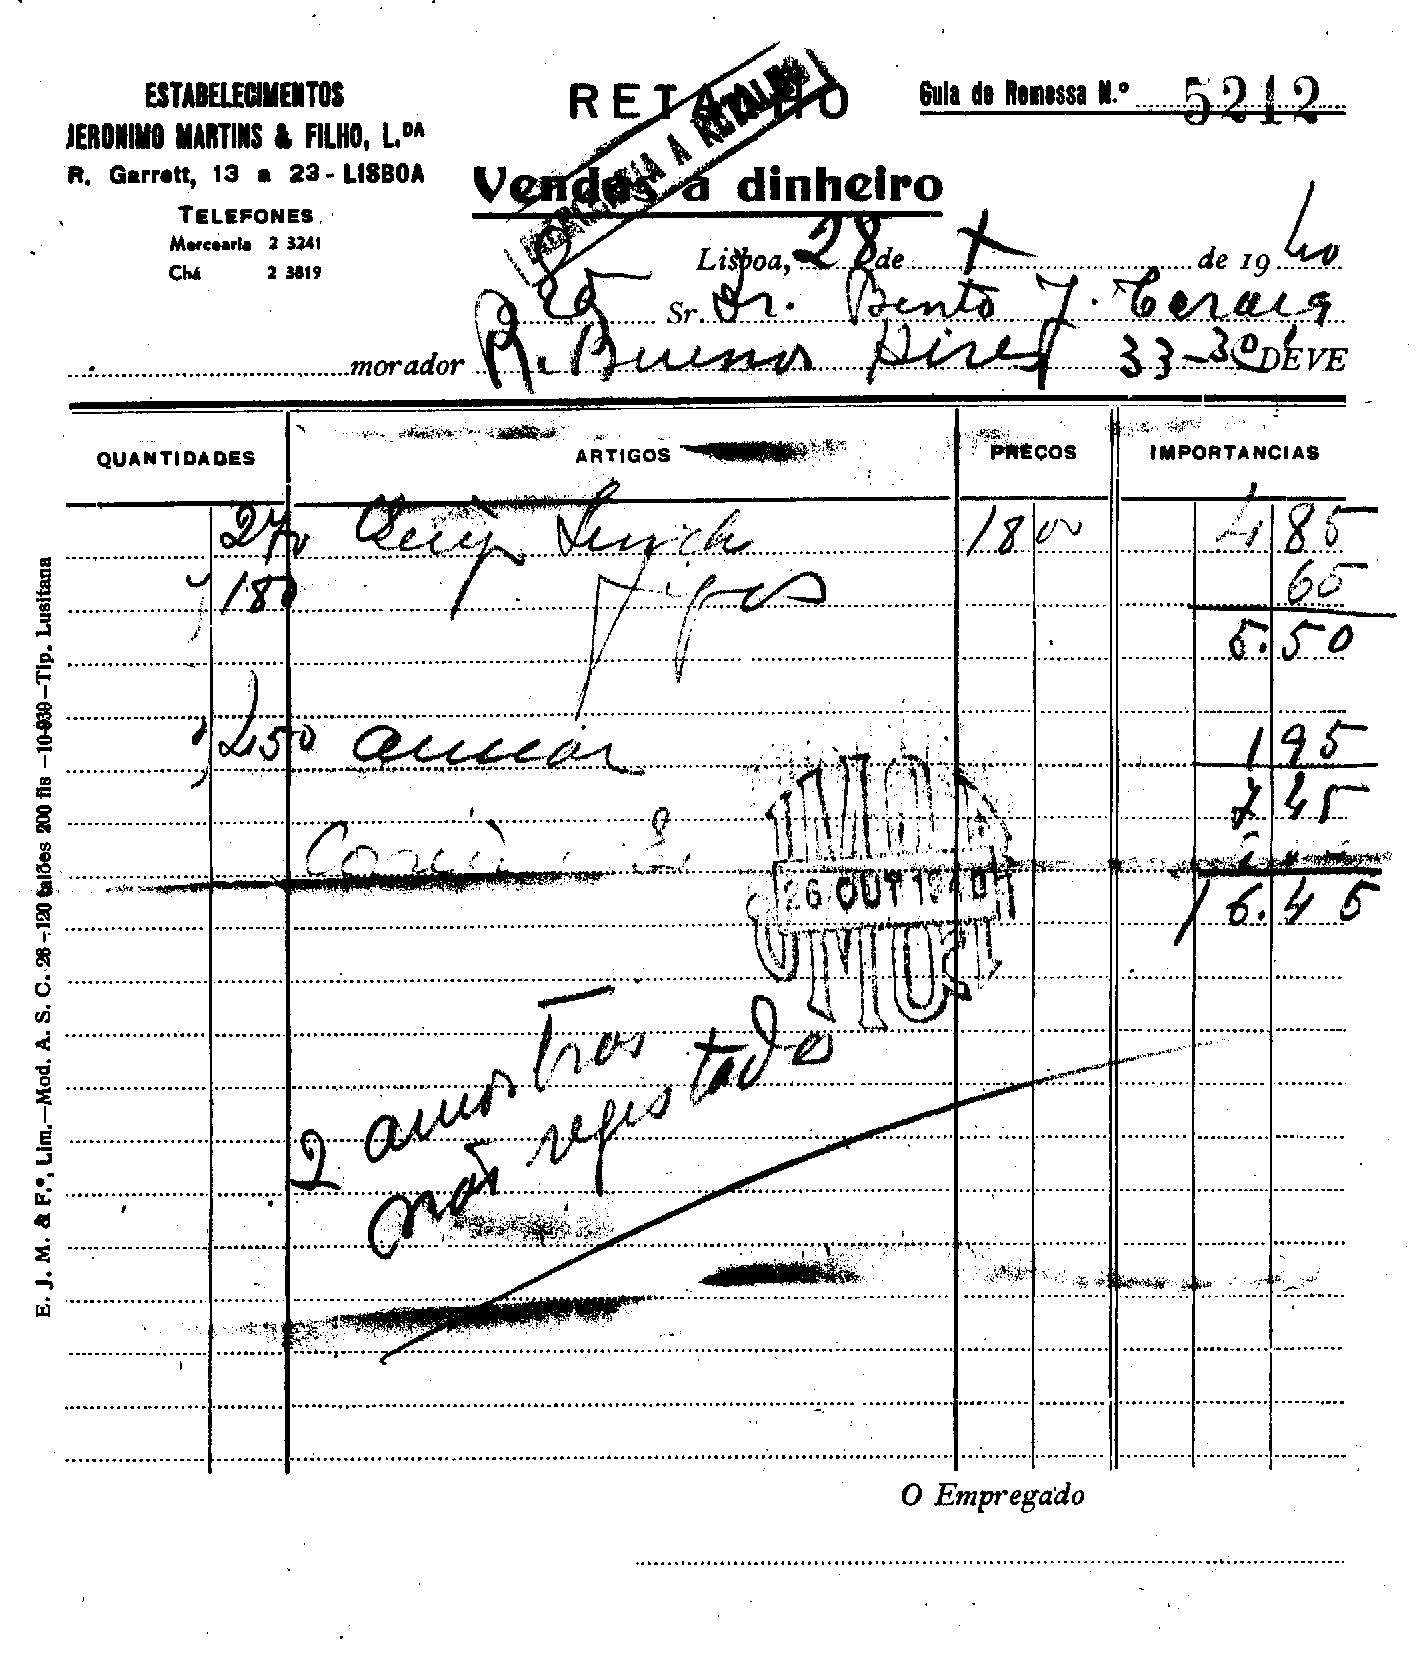 ESTABELECIMENTOS
JERONIMO MARTINS & FILHO, L.DA
R. Garrett, 13 a 23 - LISBOA
TELEFONES
Mercearia 2 3241
Chá 2 3819
RETALHO
Vendas a dinheiro
Guia de Remessa N.º 5212
Lisboa, 28 de X de 1940
Sr. Dr. Bento J. Caraça
morador R. Buenos Aires 33-3º DEVE
QUANTIDADES ARTIGOS PREÇOS IMPORTANCIAS
270 18 00 4 85
180 65
5.50
250 1 95
7 45
16.45
26 OUT 1940
2 amostras
não registadas
O Empregado
E. J. M. & F.º, Lim.—Mod. A. S. C. 26-120 talões 200 fls -10-939-Tip. Lusitana